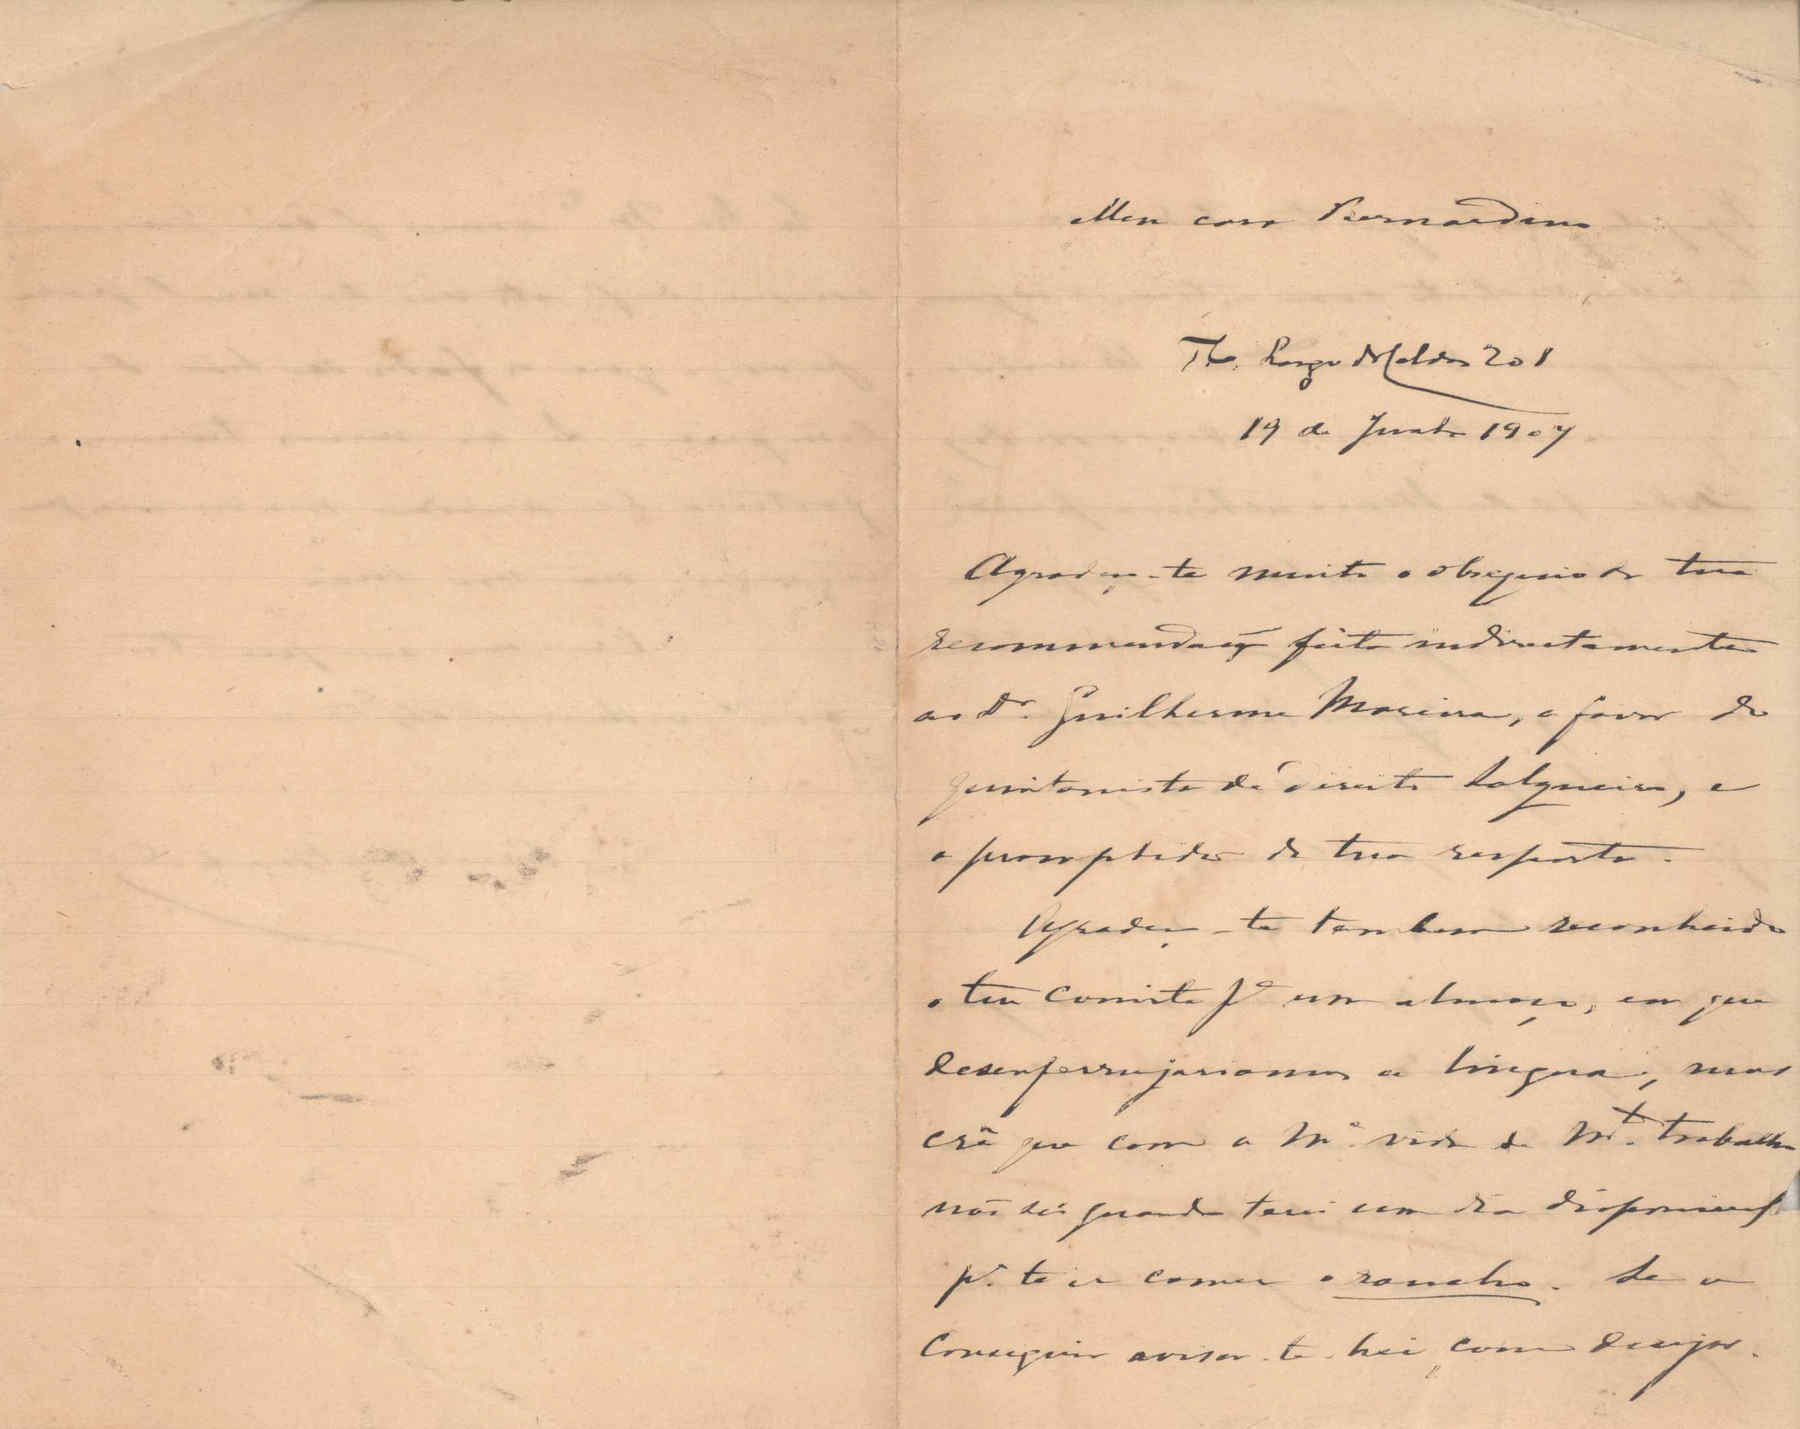 Meu caro Bernardino
Largo 201
19 de Junho 1907
Agradeço-te muito o obsequio da tua
recommendação feita indirectamente
ao Dr. Guilherme Moreira, a favor do
quintanista de direito Salgueiro, e
a promptidão da tua resposta.
Agradeço-te tambem reconhecido
o teu convite pª um almoço, em que
desenferrujariamos a lingua, mas
crê que com a mª vida de mtº trabalho
não sei quando terei um dia disponivel
pª te ir comer o rancho. Se o
conseguir avisar-te-hei, como desejas.